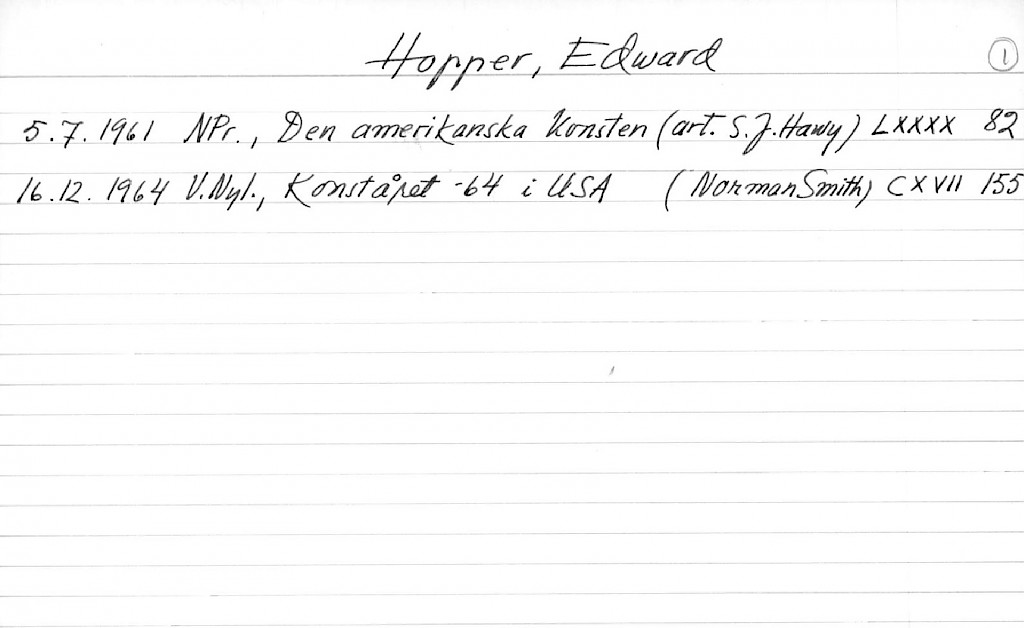 Hopper, Edward 1
5.7.1961 NPr., Den amerikanska Konsten (art. S.J. Hawy) LXXXX 82
16.12.1964 V.Nyl., Konståret -64 i USA (Norman Smith) CXVII 155